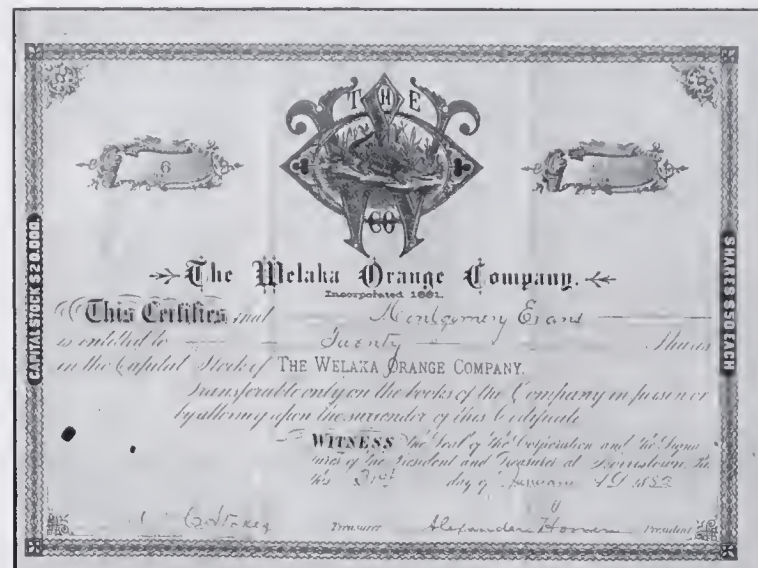 THE
6
CO
The Welaka Orange Company.
Incorporated 1881.
This Certifies that Montgomery Evans
is entitled to Twenty Shares
in the Capital Stock of THE WELAKA ORANGE COMPANY.
Transferable only on the books of the Company in person or
by attorney upon the surrender of this Certificate
WITNESS the Seal of the Corporation and the Signa
tures of the President and Treasurer at Norristown, Pa.
this day of January A.D. 188
Treasurer Alexander President
CAPITAL STOCK $20,000.
SHARES $50 EACH